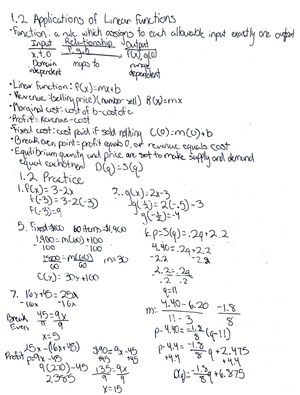 1.2 Applications of Linear Functions
•Function: a rule which assigns to each allowable input exactly one output
Input Relationship Output
x, t, θ f, g, h f(x), g(θ)
Domain maps to range
independent dependent
•Linear function: f(x)=mx+b
•Revenue: (selling price)(number sell) R(x)=mx
•Marginal cost: cost of b - cost of a
•Profit = Revenue - cost
•Fixed cost: cost paid if sold nothing C(0)=m(0)+b
•Break even point = profit equals 0, or revenue equals cost
•Equilibrium quantity and price are set to make supply and demand
equal eachother D(q)=S(q)
1.2 Practice
1. f(x)=3-2x
f(-3)=3-2(-3)
f(-3)=9
3. g(x)=2x-3
g(-½)=2(-.5)-3
g(-½)=-4
5. Fixed $100 60 items $1,900
1,900=m(60)+100
-100 -100
1800=m(60) m=30
60 60
C(x)=30x+100
6. p=S(q)=.2q+2.2
4.40=.2q+2.2
-2.2 -2.2
2.2=.2q
.2 .2
q=11
m= 4.40-6.20 -1.8
11-3 8
p-4.40=-1.8/8(q-11)
p-4.4=-1.8/8 q+2.475
+4.4 +4.4
D(q)=-1.8/8 q+6.875
7. 16x+45=25x
-16x -16x
Break 45=9x
Even 9 9
x=5
25x-(16x+45)
Profit p=9x-45
9(270)-45
2385
$90=9x-45
+45 +45
135=9x
9 9
x=15